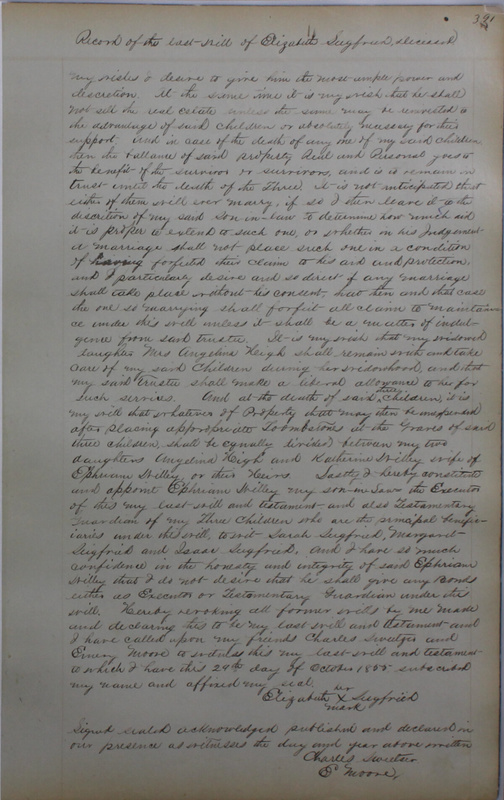 391
Record of the last will of Elizabeth Siegfried, deceased
my wishes & desire to give him the most ample power and
discretion. At the same time it is my wish that he shall
not sell the real estate unless the same may be reinvested to
the advantage of said children or absolutely necessary for their
support. And in case of the death of any one of my said children
then the ballance of said property Real and Personal goes to
the benefit of the survivor or survivors, and is to remain in
trust until the death of the Three. It is not anticipated that
either of them will ever marry, if so I then leave it to the
discretion of my said son in law to determine how much aid
it is proper to extend to such one, or whether in his Judgement
a marriage shall not place such one in a condition
of having forfeited their claim to his aid and protection,
and I particularly desire and so direct if any marriage
shall take place without his consent, that then and that case
the one so marrying shall forfeit all claim to maintainan
ce under this will unless it shall be a matter of indul-
gence from said trustee. It is my wish that my widowed
daughter Mrs Angelina Heigh shall remain with and take
care of my said Children during her widowhood, and that
my said Trustee shall make a liberal allowance to her for
such services. And at the death of said three children, it is
my will that whatever of Property that may then be unexpended
after placing appropriate Toombstones at the Graves of said
three children, shall be equally divided between my two
daughters Angelina Heigh and Katherine Willey wife of
Ephriam Willey or their Heirs. Lastly I hereby constitute
and appoint Ephriam Willey my son-in-law the Executor
of this my last will and testament and also Testamentary
Guardian of my Three Children who are the principal benefic-
iaries under this will, to wit Sarah Siegfried, Margaret
Siegfried and Isaac Siegfried. And I have so much
confidence in the honesty and integrity of said Ephriam
Willey that I do not desire that he shall give any Bonds
either as Executor or Testamentary Guardian under this
will. Hereby revoking all former wills by me made
and declaring this to be my last will and testament and
I have called upon my friends Charles Sweitzer and
Emery Moore to witness this my last will and testament
to which I have this 29th day of October 1855 subscribed
my name and affixed my seal.
her
Elizabeth X Siegfried
mark
Signed sealed acknowledged published and declared in
our presence as witnesses the day and year above written
Charles Sweitzer
E. Moore,